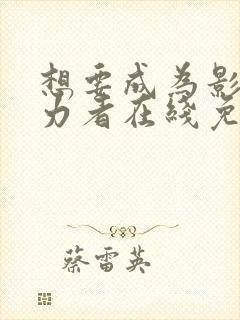 想要成为影
力者在线免
蔡雷英